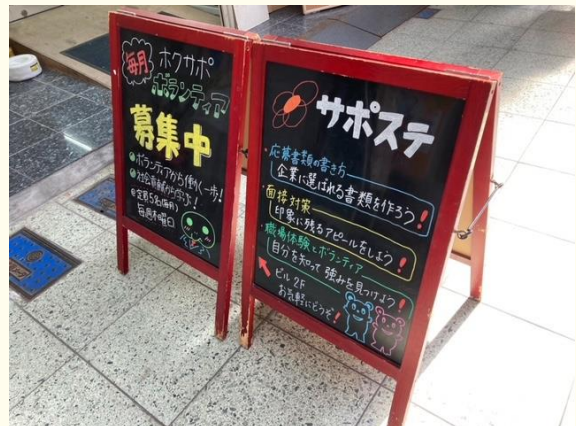 毎月
ホクサポ
ボランティア
募集中
ボランティアから働く一歩!
社会貢献から学ぶ!
定員5名(毎月)
毎週木曜日
サポステ
・応募書類の書き方
企業に選ばれる書類を作ろう!
・面接対策
印象に残るアピールをしよう!
・職場体験とボランティア
自分を知って強みを見つけよう!
ビル2F
お気軽にどうぞ!